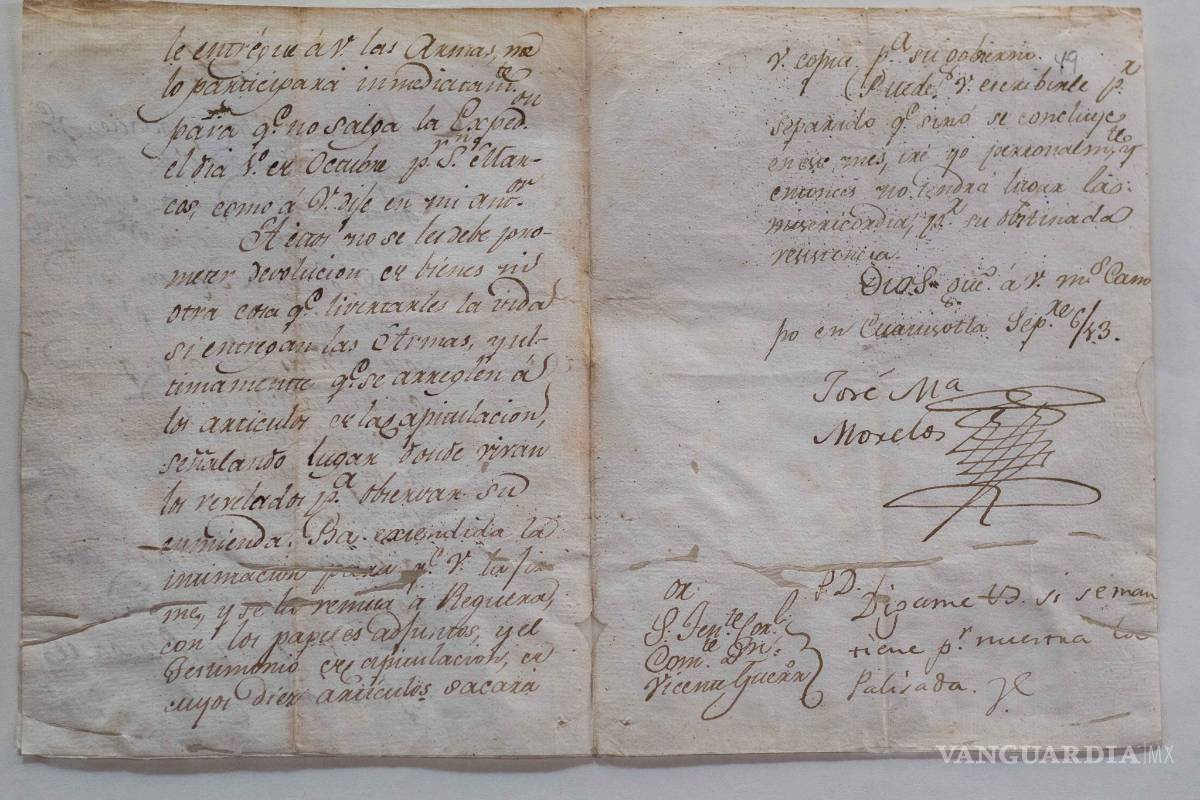 le entregue á V. las Armas, me
lo participará inmediatam.te
para q.e no salga la Exped.on
el dia 1.o de Octubre p.r S.n Mar-
cos, como á V. dije en mi ant.or
A estos no se les debe pro-
meter devolucion de bienes ni
otra cosa q.e livertarles la vida
si entregan las Armas, y ul-
timamente q.e se arreglen á
los articulos de la Capitulacion,
señalando lugar donde vivan
los revelados p.a observar su
enmienda. Ba extendida la
intimacion para q.e V. la fir-
me, y se la remita á Reguera,
con los papeles adjuntos, y el
Testimonio de capitulacion, de
cuyos diez articulos sacará
49
V. copia p.a su gobierno.
Puede V. escribirle p.r
separado q.e sinó se concluye
en este mes, iré yo personalm.te y
entonces no tendrá lugar la
misericordia, p.r su obstinada
resistencia.
Dios gue. á V. m.s a.s Cam
po en Sep.re 6/813.
José M.a
Morelos
S. Ten.te Cor.l
Com.te D.n
Vicente Guerr.o
P.D.
Digame Vd. si se man
tiene p.r nuestra la
Palisada.
VANGUARDIA|MX